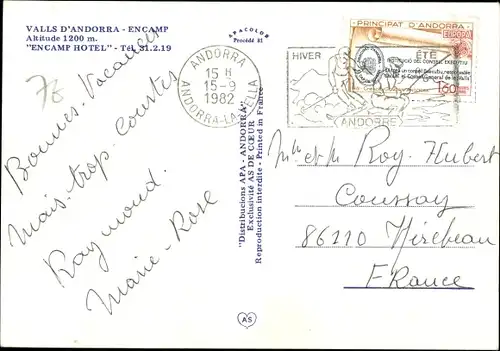 VALLS D'ANDORRA - ENCAMP
Altitude 1200 m.
"ENCAMP HOTEL" - Tél. 31.2.19
APACOLOR
Procédé 81
78
Bonnes Vacances
Mais trop Courtes
Raymond
Marie-Rose
"Distribucions APA - ANDORRA"
Exclusivité AS DE CŒUR
Reproduction interdite - Printed in France
AS
ANDORRA
15 H
15-9
1982
ANDORRA-LA-VELLA
HIVER
ÉTÉ
(ANDORRE)
PRINCIPAT D'ANDORRA
EUROPA
INSTITUCIÓ DEL CONSELL EXECUTIU
1,60
Roy Hubert
Coussay
86110 Mirebeau
FRance